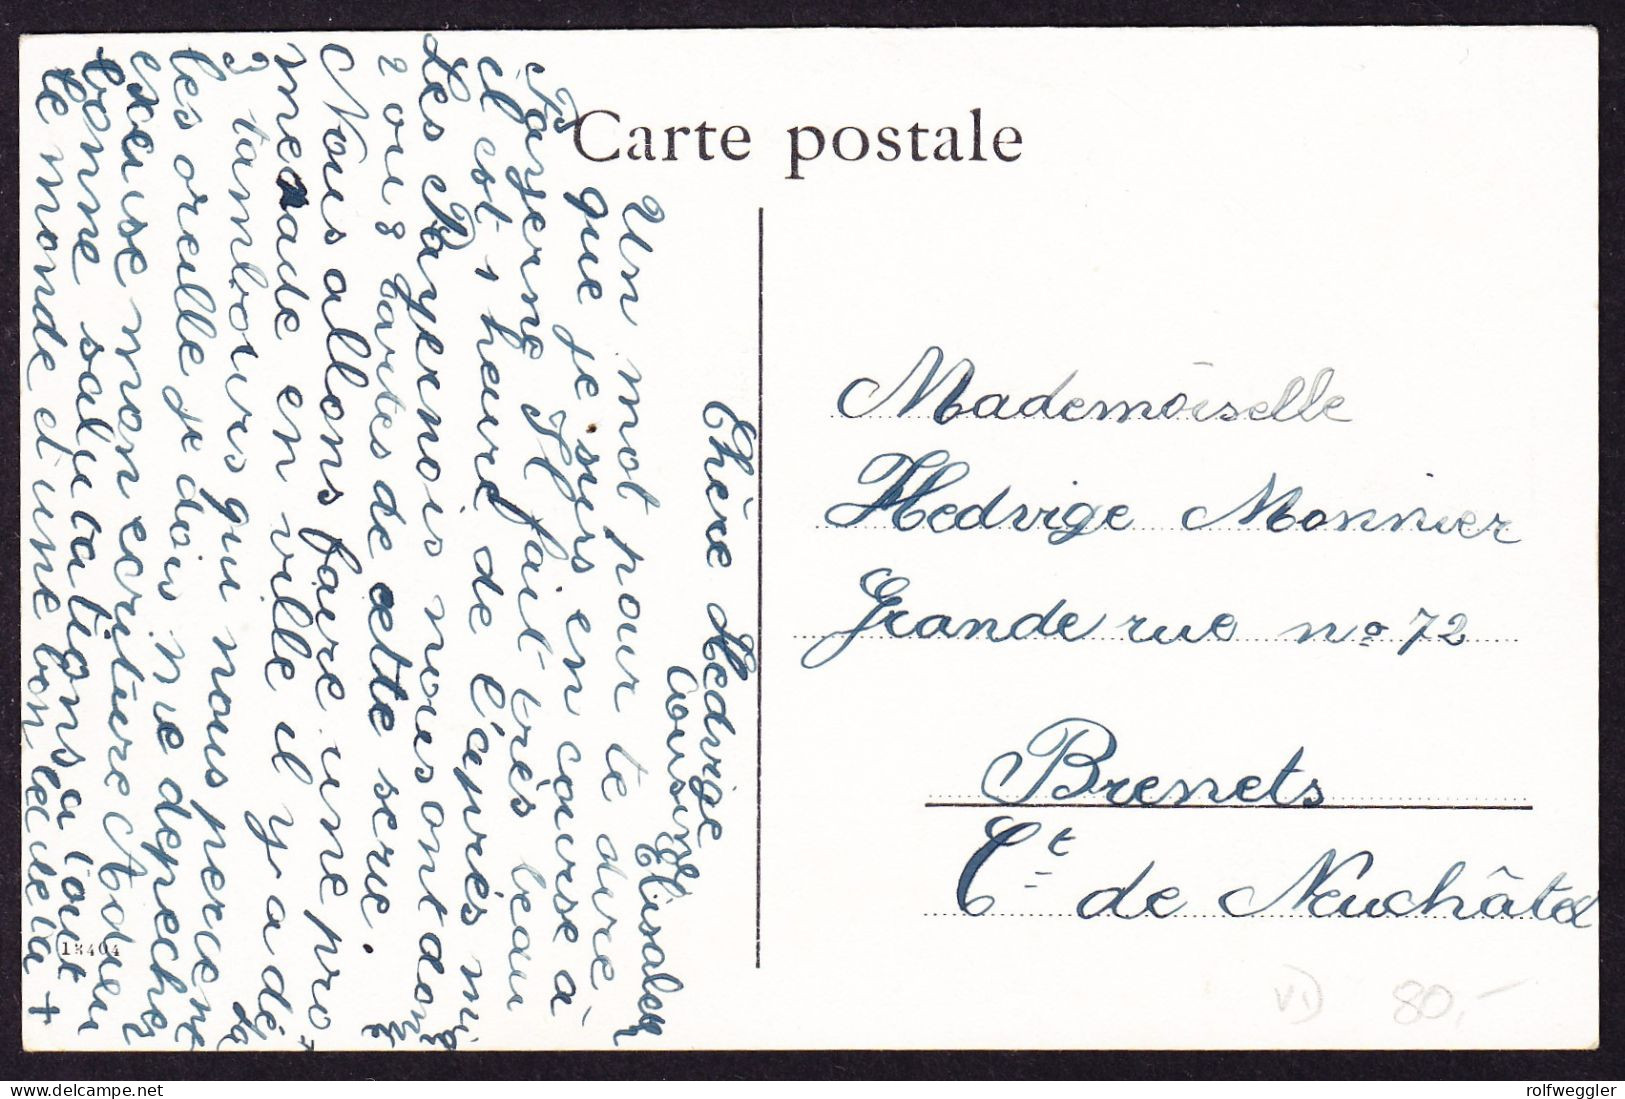 Carte postale
Chère Hedvige
Un mot pour te dire
que je suis en course à
Payerne Il fait très beau
il est 1 heure de l'après mi
Les Payernois nous ont donné
2 ou 3 cartes de cette serie.
Nous allons faire une pro
menade en ville il y a déjà
3 tambours qui nous percent
les oreille je dois me depecher
excuse mon ecriture Adieu
bonne salucations a tout
le monde et une bon bec de ta +
Cousine Elisabeth
Mademoiselle
Hedvige Monnier
Grande rue no 72
Brenets
Ct de Neuchâtel
13404
80.-
rolfweggler
delcampe.net